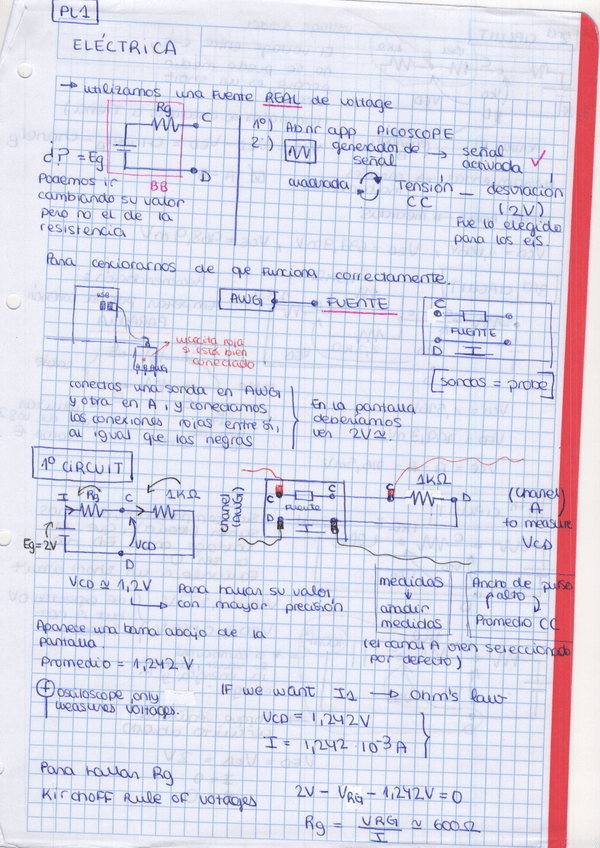 PL1
ELÉCTRICA
→ utilizamos una fuente REAL de voltage
Rg
C
¿? = Eg
D
BB
Podemos ir
cambiando su valor
pero no el de la
resistencia
1º) Abrir app PICOSCOPE
2º) generador de señal → señal activada ✓
cuadrada Tensión CC — desviación (2V)
Fue lo elegido
para los ejs.
Para cerciorarnos de que funciona correctamente.
USB
A
lucecita roja
si está bien
conectado
AWG FUENTE
C
FUENTE
D
[sondas = probe]
conectas una sonda en AWG
y otra en A, y conectamos
las conexiones rojas entre sí,
al igual que las negras
En la pantalla
deberíamos
ver 2V≃.
1º CIRCUIT
I Rg C 1KΩ
Eg=2V
VCD
D
Chanel
(AWG)
C C
Fuente
D D
C 1KΩ D
(Chanel
A)
to measure
VCD
VCD ≃ 1,2V
Para hallar su valor
con mayor precisión
medidas
↓
añadir
medidas
Ancho de pulso
palto
Promedio CC
(el canal A viene seleccionado
por defecto)
Aparece una barra abajo de la
pantalla.
Promedio = 1,242 V
+ osciloscope only
measures voltages.
IF we want I1 → Ohm's law
VCD = 1,242V
I = 1,242 · 10⁻³ A
Para hallar Rg
Kirchoff Rule of votages
2V - VRG - 1,242V = 0
Rg = VRG / I ≃ 600Ω